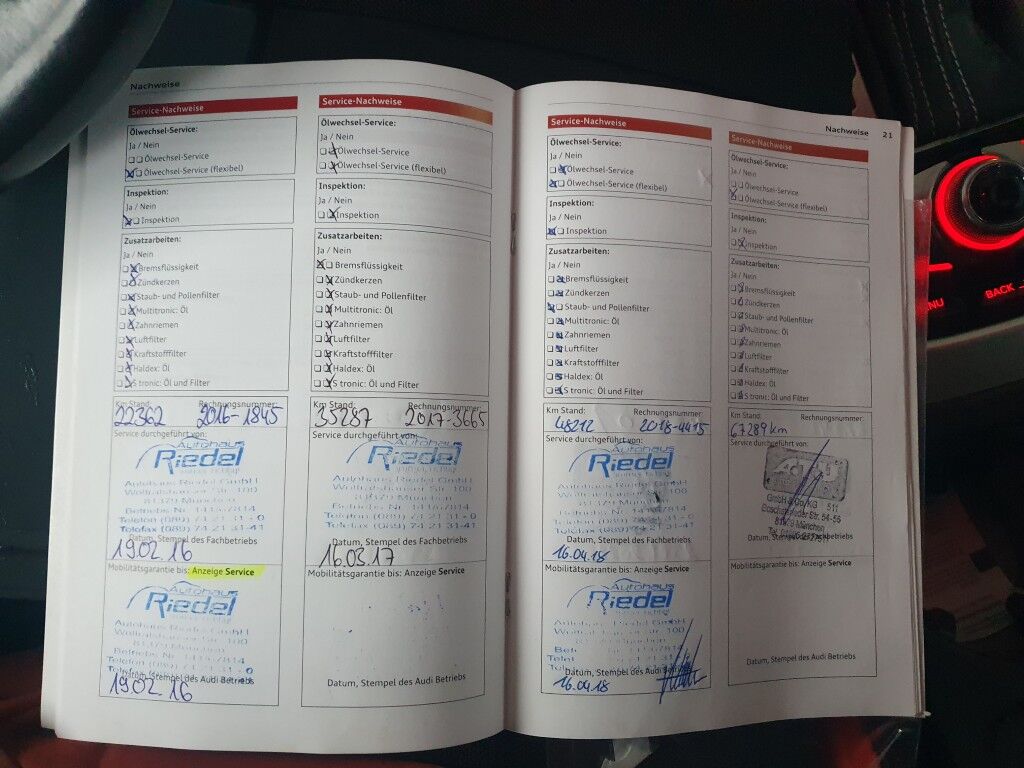 Nachweise
Service-Nachweise
Ölwechsel-Service:
Ja / Nein
Ölwechsel-Service
Ölwechsel-Service (flexibel)
Inspektion:
Ja / Nein
Inspektion
Zusatzarbeiten:
Ja / Nein
Bremsflüssigkeit
Zündkerzen
Staub- und Pollenfilter
Multitronic: Öl
Zahnriemen
Luftfilter
Kraftstofffilter
Haldex: Öl
S tronic: Öl und Filter
Km Stand: Rechnungsnummer:
22362 2016-1845
Service durchgeführt von:
Autohaus
Riedel
Autohaus Riedel GmbH
Wolfratshauser Str. 100
81379 München
Betriebs Nr. 14157/814
Telefon (089) 74 21 31-0
Telefax (089) 74 21 31-41
Datum, Stempel des Fachbetriebs
19.02.16
Mobilitätsgarantie bis: Anzeige Service
Autohaus
Riedel
Autohaus Riedel GmbH
100
Datum, Stempel des Audi Betriebs
19.02.16
Service-Nachweise
Ölwechsel-Service:
Ja / Nein
Ölwechsel-Service
Ölwechsel-Service (flexibel)
Inspektion:
Ja / Nein
Inspektion
Zusatzarbeiten:
Ja / Nein
Bremsflüssigkeit
Zündkerzen
Staub- und Pollenfilter
Multitronic: Öl
Zahnriemen
Luftfilter
Kraftstofffilter
Haldex: Öl
S tronic: Öl und Filter
Km Stand: Rechnungsnummer:
35287 2017-3665
Service durchgeführt von:
Autohaus
Riedel
Autohaus Riedel GmbH
Wolfratshauser Str. 100
81379 München
Telefon (089) 74 21 31-0
Telefax (089) 74 21 31-41
Datum, Stempel des Fachbetriebs
16.03.17
Mobilitätsgarantie bis: Anzeige Service
Datum, Stempel des Audi Betriebs
Nachweise 21
Service-Nachweise
Ölwechsel-Service:
Ja / Nein
Ölwechsel-Service
Ölwechsel-Service (flexibel)
Inspektion:
Ja / Nein
Inspektion
Zusatzarbeiten:
Ja / Nein
Bremsflüssigkeit
Zündkerzen
Staub- und Pollenfilter
Multitronic: Öl
Zahnriemen
Luftfilter
Kraftstofffilter
Haldex: Öl
S tronic: Öl und Filter
Km Stand: Rechnungsnummer:
48212 2018-4415
Service durchgeführt von:
Autohaus
Riedel
Datum, Stempel des Fachbetriebs
16.04.18
Mobilitätsgarantie bis: Anzeige Service
Autohaus
Riedel
Riedel GmbH
100
Datum, Stempel des Audi Betriebs
16.04.18
Service-Nachweise
Ölwechsel-Service:
Ja / Nein
Ölwechsel-Service
Ölwechsel-Service (flexibel)
Inspektion:
Ja / Nein
Inspektion
Zusatzarbeiten:
Ja / Nein
Bremsflüssigkeit
Zündkerzen
Staub- und Pollenfilter
Multitronic: Öl
Zahnriemen
Luftfilter
Kraftstofffilter
Haldex: Öl
S tronic: Öl und Filter
Km Stand: Rechnungsnummer:
67289 km
Service durchgeführt von:
GmbH & Co. KG 511
Str. 54-56
München
Datum, Stempel des Fachbetriebs
Mobilitätsgarantie bis: Anzeige Service
Datum, Stempel des Audi Betriebs
BACK